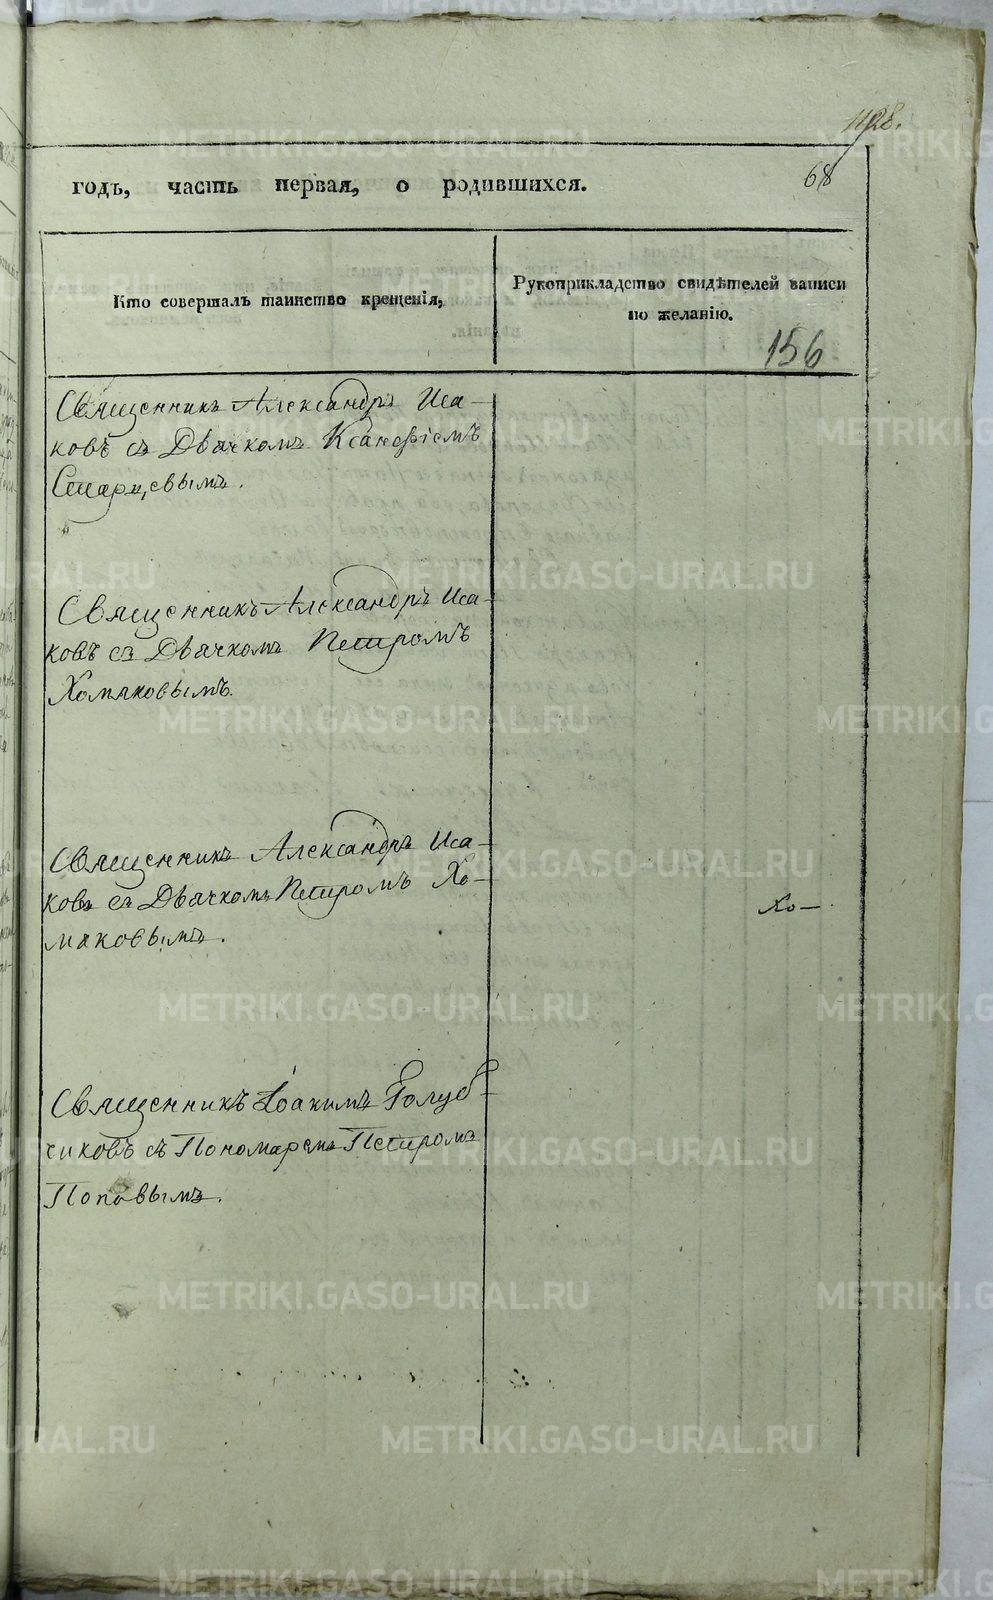 1128.
68
годъ, часть первая, о родившихся.
Кто совершалъ таинство крещенія,
Рукоприкладство свидѣтелей записи
по желанію.
156
Священникъ Александръ Иса-
ковъ съ Дьячкомъ Ксанофіемъ
Старцевымъ.
Священникъ Александръ Иса-
ковъ съ Дьячкомъ Петромъ
Хомяковымъ.
Священникъ Александръ Иса-
ковъ съ Дьячкомъ Петромъ Хо-
мяковымъ.
Хо-
Священникъ Іоакимъ Голуб-
чиковъ съ Пономаремъ Петромъ
Поповымъ.
METRIKI.GASO-URAL.RU